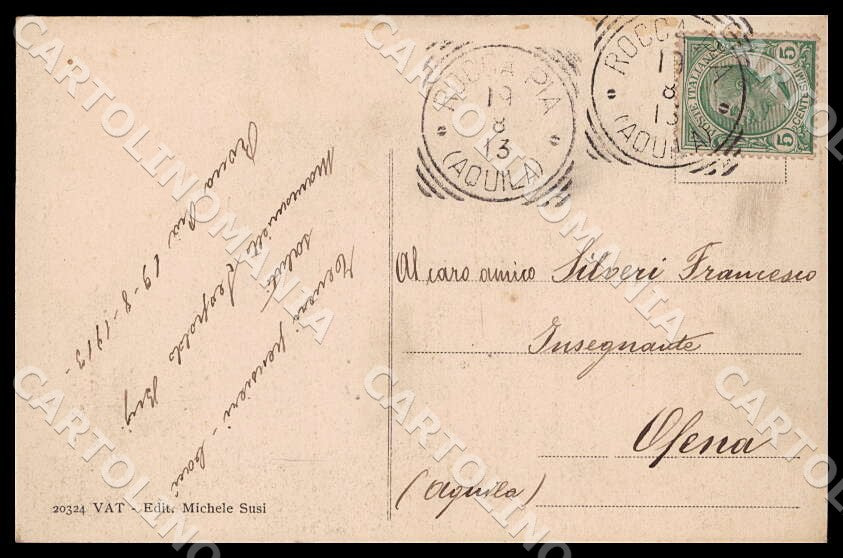 ROCCA PIA
19
8
13
(AQUILA)
ROCCA PIA
19
8
13
(AQUILA)
POSTE ITALIANE
CENTESIMI
5
5
Al caro amico Silveri Francesco
Insegnante
Ofena
(Aquila)
Teneri pensieri - baci
saluti
Leopoldo
Rocca Pia 19-8-1913-
20324 VAT - Edit. Michele Susi
CARTOLINOMANIA